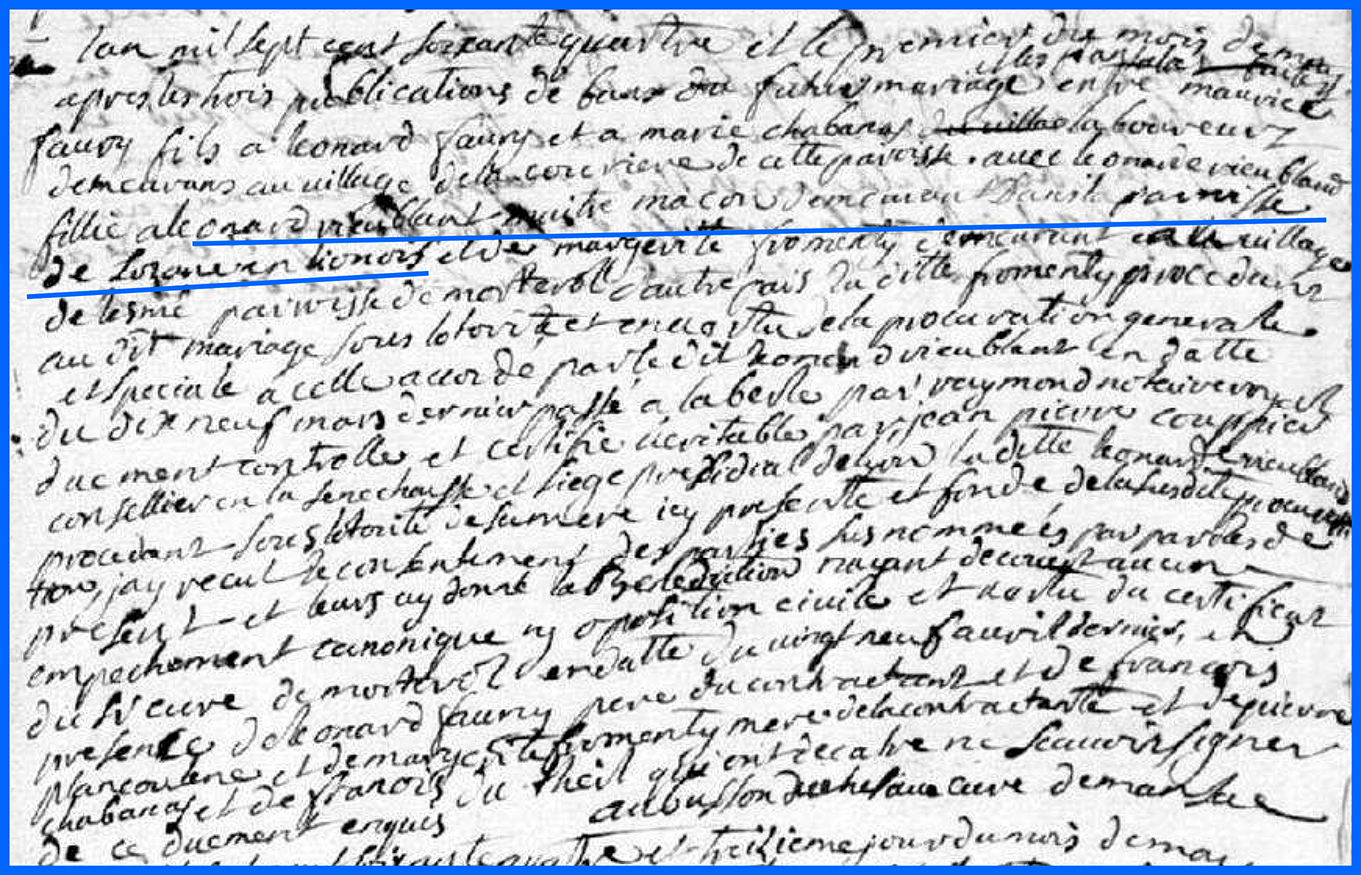 lan mil sept cent soixante quattre et le premier du mois de may
apres les trois publications de bans du futur mariage entre maurice
faury fils a leonard faury et a marie chabanas laboureurs
demeurans au village de la courriere de cette paroisse avec leonarde vieublant
fillie a leonard vieublant maitre macon demeurant dans la parroisse
de lozane en lionois et de margerite fromenty demeurant au village
de lesme parroisse de morterolt dautre pars la ditte fromenty procedant
au dit mariage sous lotorite et en vertu de la procuration generalle
et speciale a celle accordé par le dit leonard vieublant en datte
du dix neuf mars dernier passé a par raymond notaire royal
duement controlle et certifie veritable par jean pierre couppier
conseillier en la senechaussé et siege presidial de lion la ditte leonarde vieubland
procedant sous lotorite de sa mere icy presente et fondé de la susdite procura
tion, jay recut le consentement des parties sus nommées par paroles de
present et leurs ay donné la Benediction nayant decouvert aucun
empechement canonique ny oposition civile et du certificat
du sr cure de morterol en datte du vingt neuf avril dernier, en
presence de leonard faury pere du contractant et de francois
et de margerite fromenty mere de la contractante et de pierre
chabanas et de francois du theil qui ont declaré ne scauvoir signer
de ce duement enquis aubusson cure de
et treizieme jour du mois de may